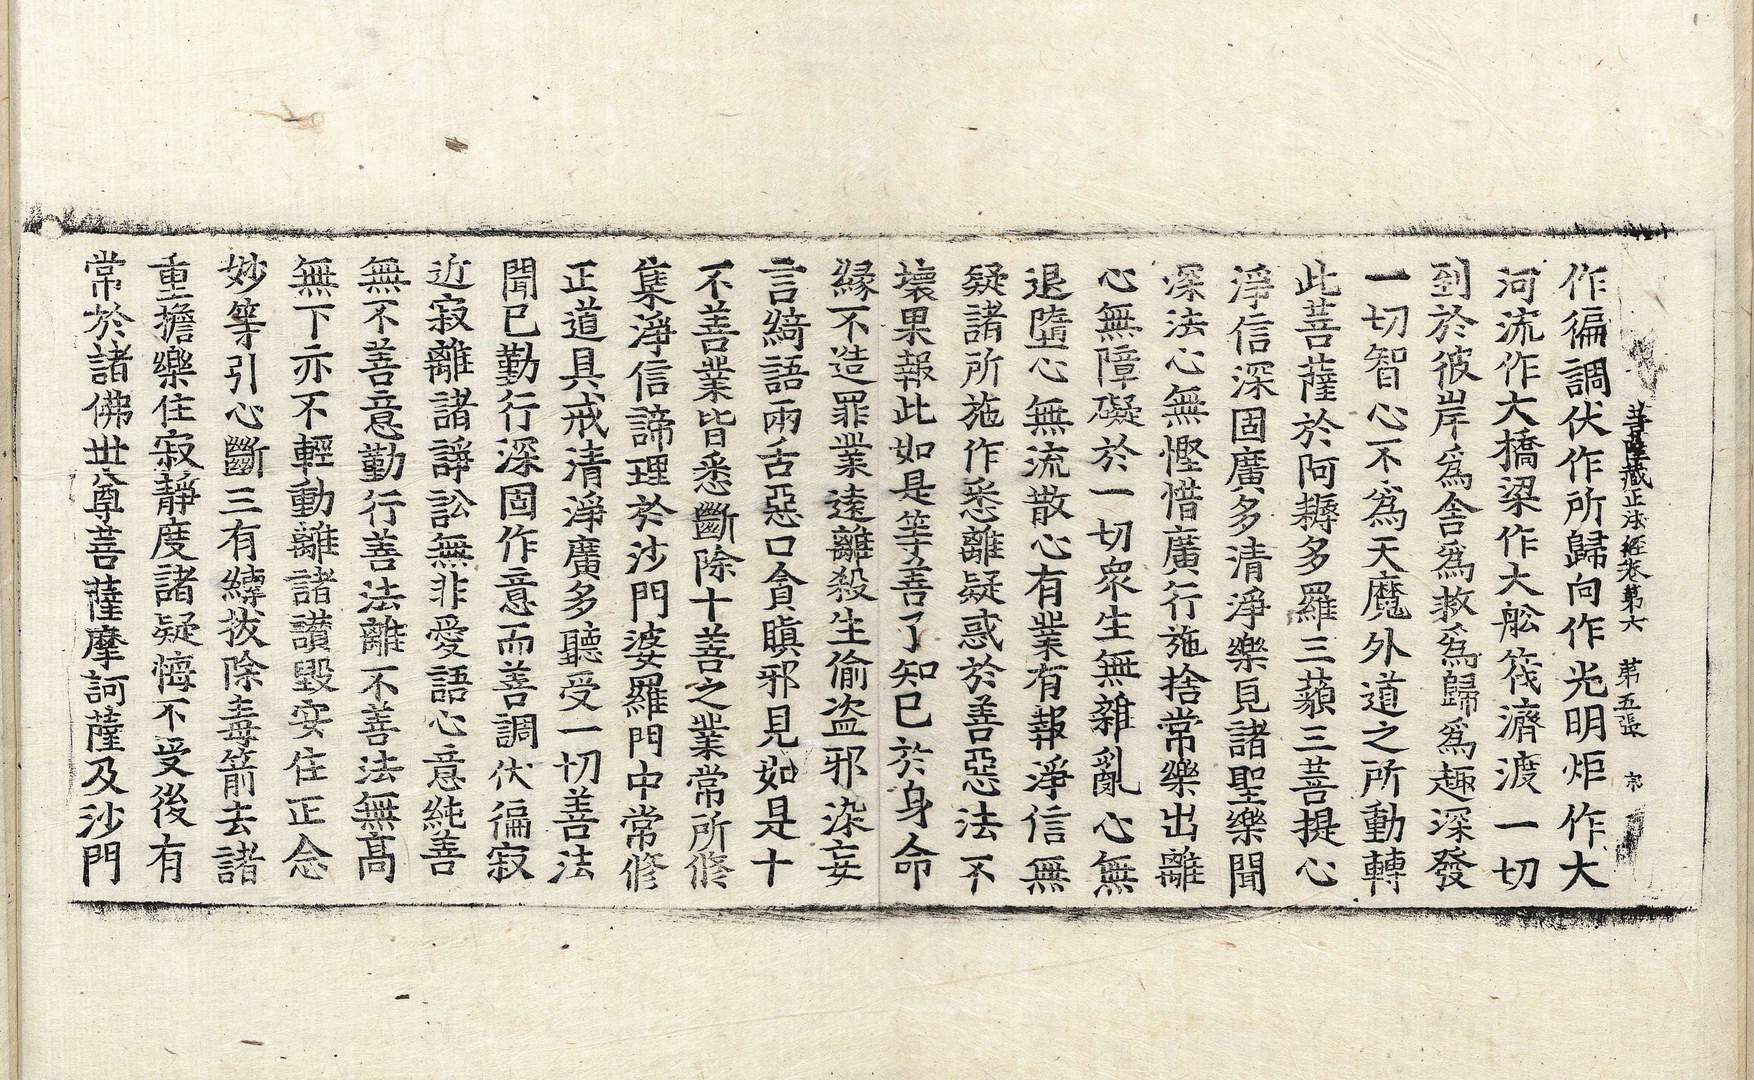 菩薩藏正法經卷第六 第五張
作徧調伏作所歸向作光明炬作大
河流作大橋梁作大舩筏濟渡一切
到於彼岸爲舎爲救爲歸爲趣深發
一切智心不爲天魔外道之所動轉
此菩薩於阿耨多羅三藐三菩提心
淨信深固廣多清淨樂見諸聖樂聞
深法心無慳惜廣行施捨常樂出離
心無障礙於一切衆生無雜亂心無
退墮心無流散心有業有報淨信無
疑諸所施作悉離疑惑於善惡法不
壞果報此如是等善了知已於身命
縁不造罪業遠離殺生偷盗邪染妄
言綺語兩舌惡口貪瞋邪見如是十
不善業皆悉斷除十善之業常所修
集淨信諦理於沙門婆羅門中常修
正道具戒清淨廣多聽受一切善法
聞已勤行深固作意而善調伏徧寂
近寂離諸諍訟無非愛語心意純善
無不善意勤行善法離不善法無髙
無下亦不輕動離諸讃毀安住正念
妙等引心斷三有縛拔除毒箭去諸
重擔樂住寂靜度諸疑悔不受後有
常於諸佛世尊菩薩摩訶薩及沙門